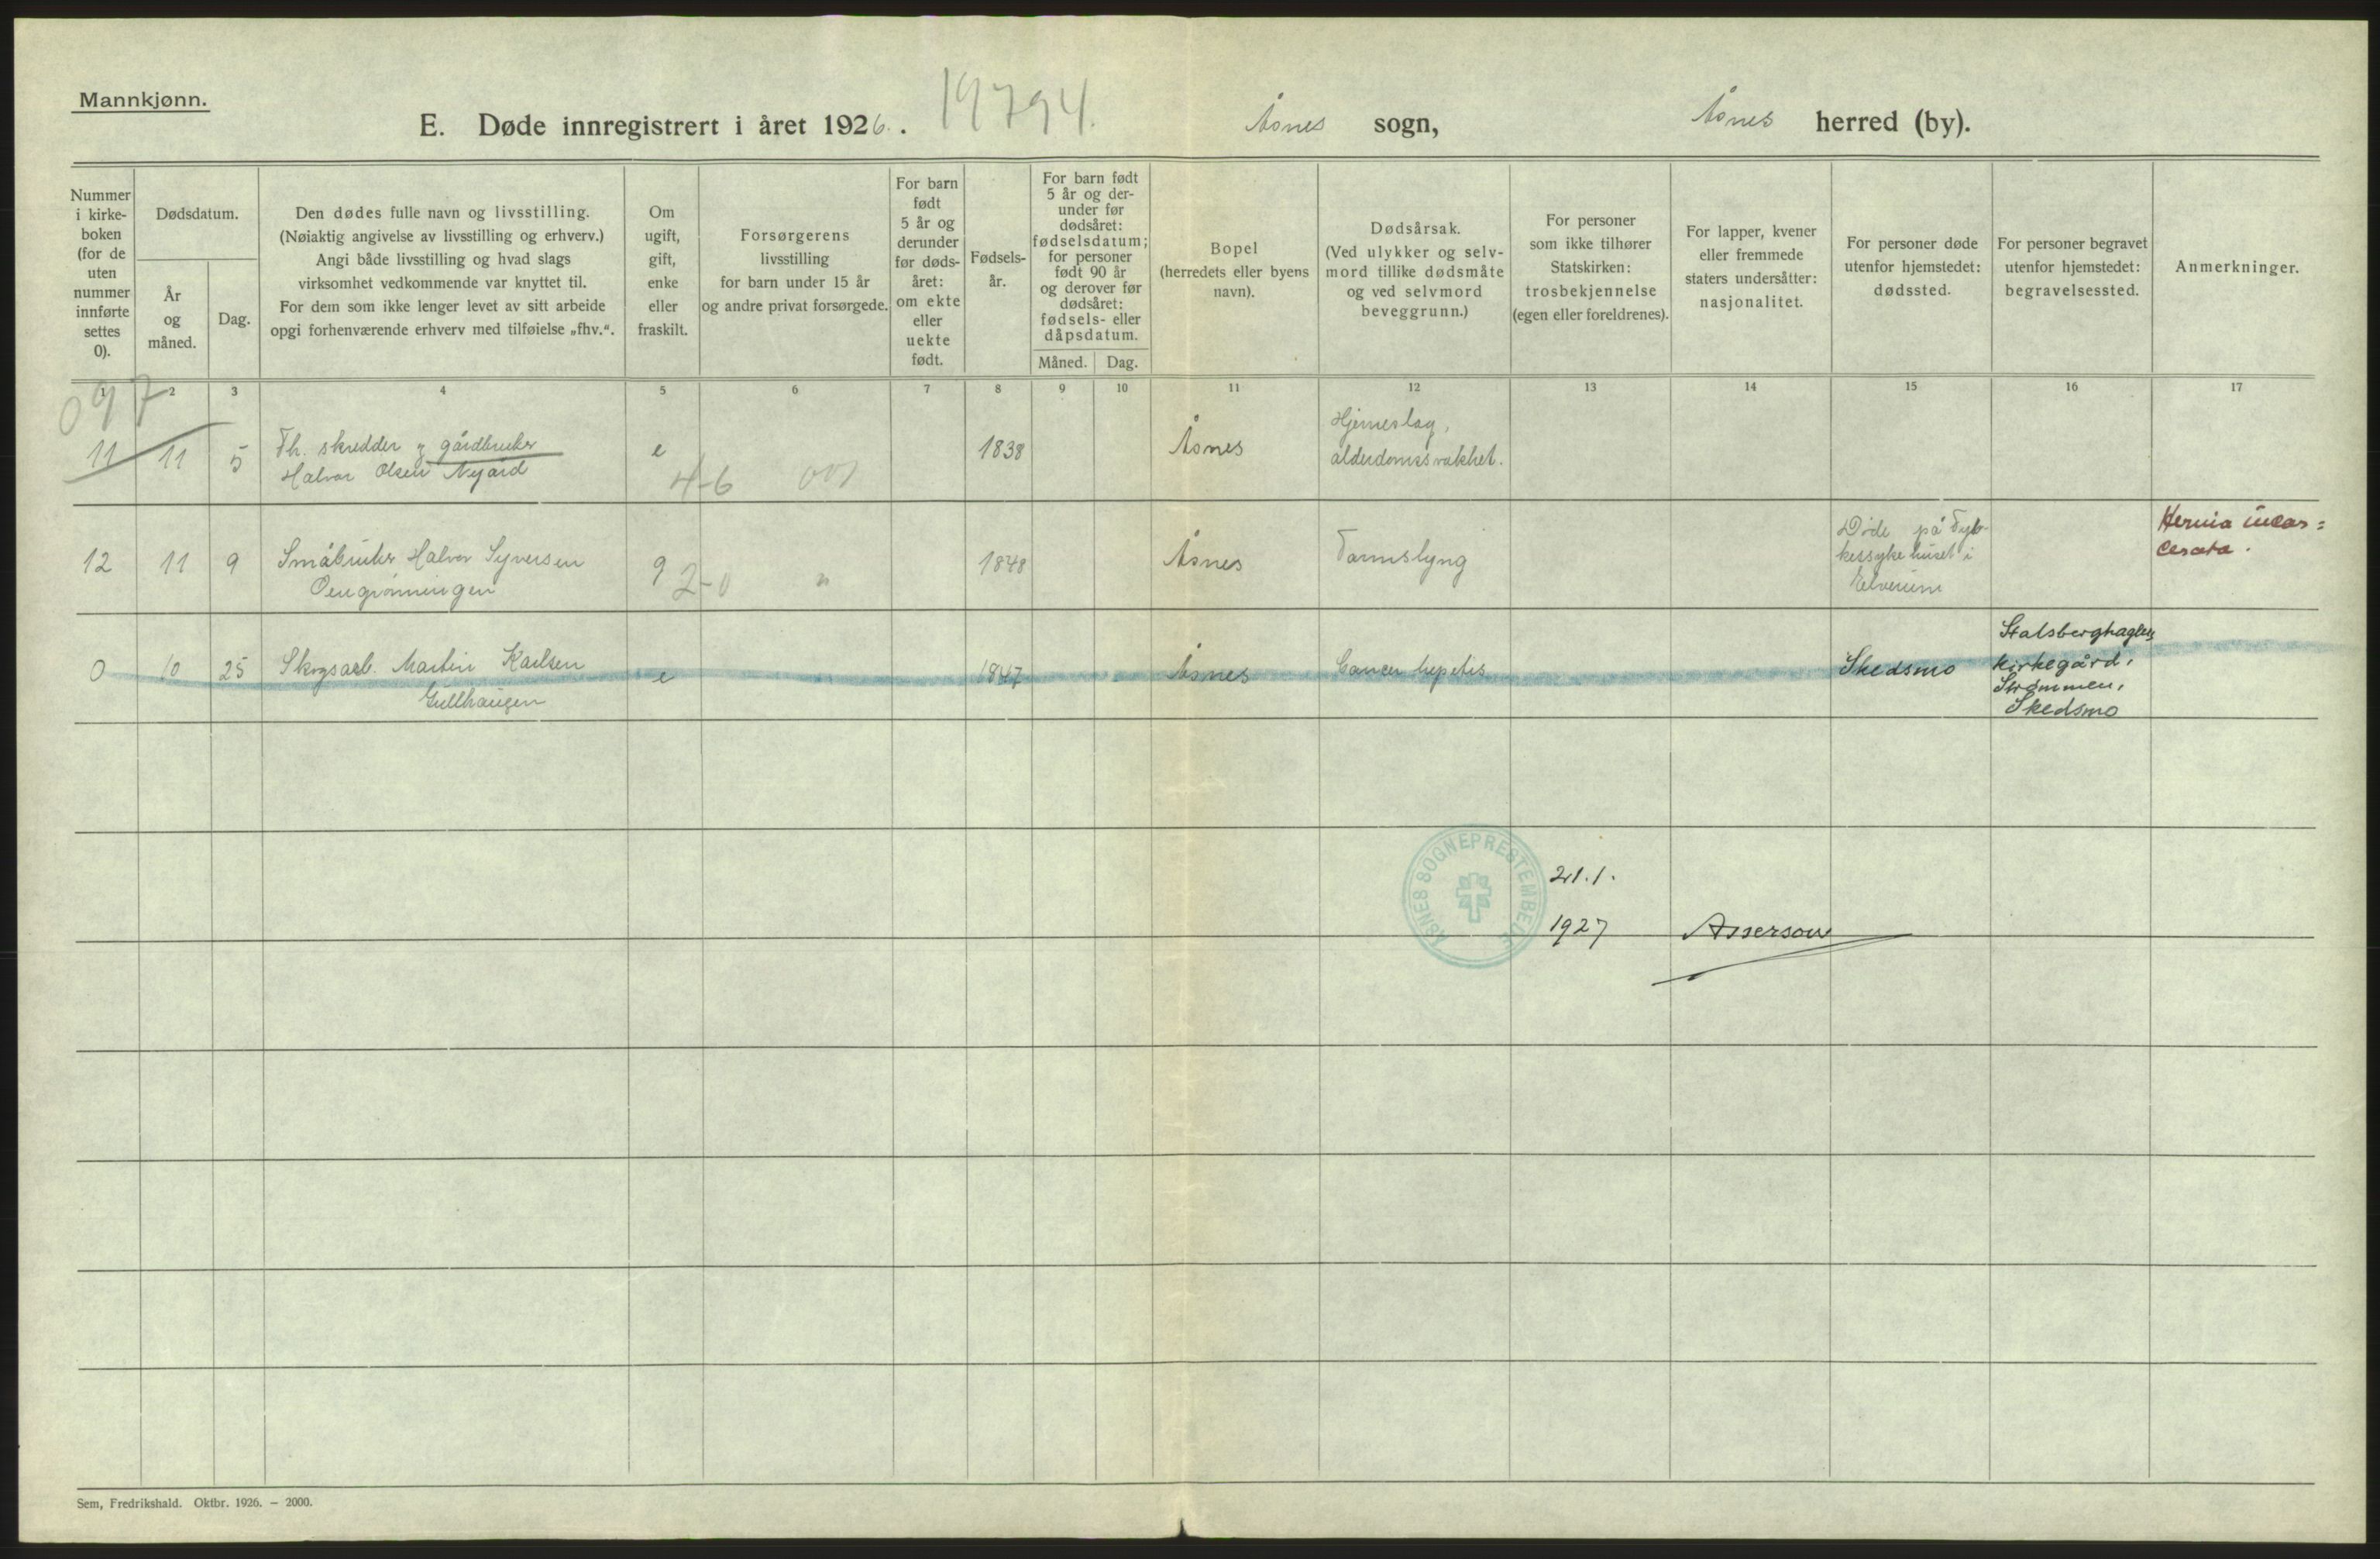 Mannkjønn.
E. Døde innregistrert i året 1926. 19794.
Åsnes sogn, Åsnes herred (by).
Nummer
i kirke-
boken
(for de
uten
nummer
innførte
settes
0).
Dødsdatum.
År
og
måned.
Dag.
Den dødes fulle navn og livsstilling.
(Nøiaktig angivelse av livsstilling og erhverv.)
Angi både livsstilling og hvad slags
virksomhet vedkommende var knyttet til.
For dem som ikke lenger levet av sitt arbeide
opgi forhenværende erhverv med tilføielse „fhv.“.
Om
ugift,
gift,
enke
eller
fraskilt.
Forsørgerens
livsstilling
for barn under 15 år
og andre privat forsørgede.
For barn
født
5 år og
derunder
før døds-
året:
om ekte
eller
uekte
født.
Fødsels-
år.
For barn født
5 år og der-
under før
dødsåret:
fødselsdatum;
for personer
født 90 år
og derover før
dødsåret:
fødsels- eller
dåpsdatum.
Måned. Dag.
Bopel
(herredets eller byens
navn).
Dødsårsak.
(Ved ulykker og selv-
mord tillike dødsmåte
og ved selvmord
beveggrunn.)
For personer
som ikke tilhører
Statskirken:
trosbekjennelse
(egen eller foreldrenes).
For lapper, kvener
eller fremmede
staters undersåtter:
nasjonalitet.
For personer døde
utenfor hjemstedet:
dødssted.
For personer begravet
utenfor hjemstedet:
begravelsessted.
Anmerkninger.
1 2 3 4 5 6 7 8 9 10 11 12 13 14 15 16 17
097
11 11 5 Fh. skredder og gårdbruker
Halvor Olsen Nygård
e 4-6 001 1838 Åsnes
Hjerneslag,
alderdomssvakhet.
12 11 9 Småbruker Halvor Syversen
g 2-0 " 1848 Åsnes Tarmslyng
Døde på Fyl-
kessykehuset i
Elverum
Hernia incar=
cerata.
0 10 25 Skogsarb. Martin Karlsen
Gullhaugen
e 1847 Åsnes Cancer hepatis Skedsmo
Stalsberghagen
kirkegård,
Strømmen,
Skedsmo
ÅSNES SOGNEPRESTEMBEDE
21.1.
1927 Asserson
Sem, Fredrikshald. Oktbr. 1926. — 2000.